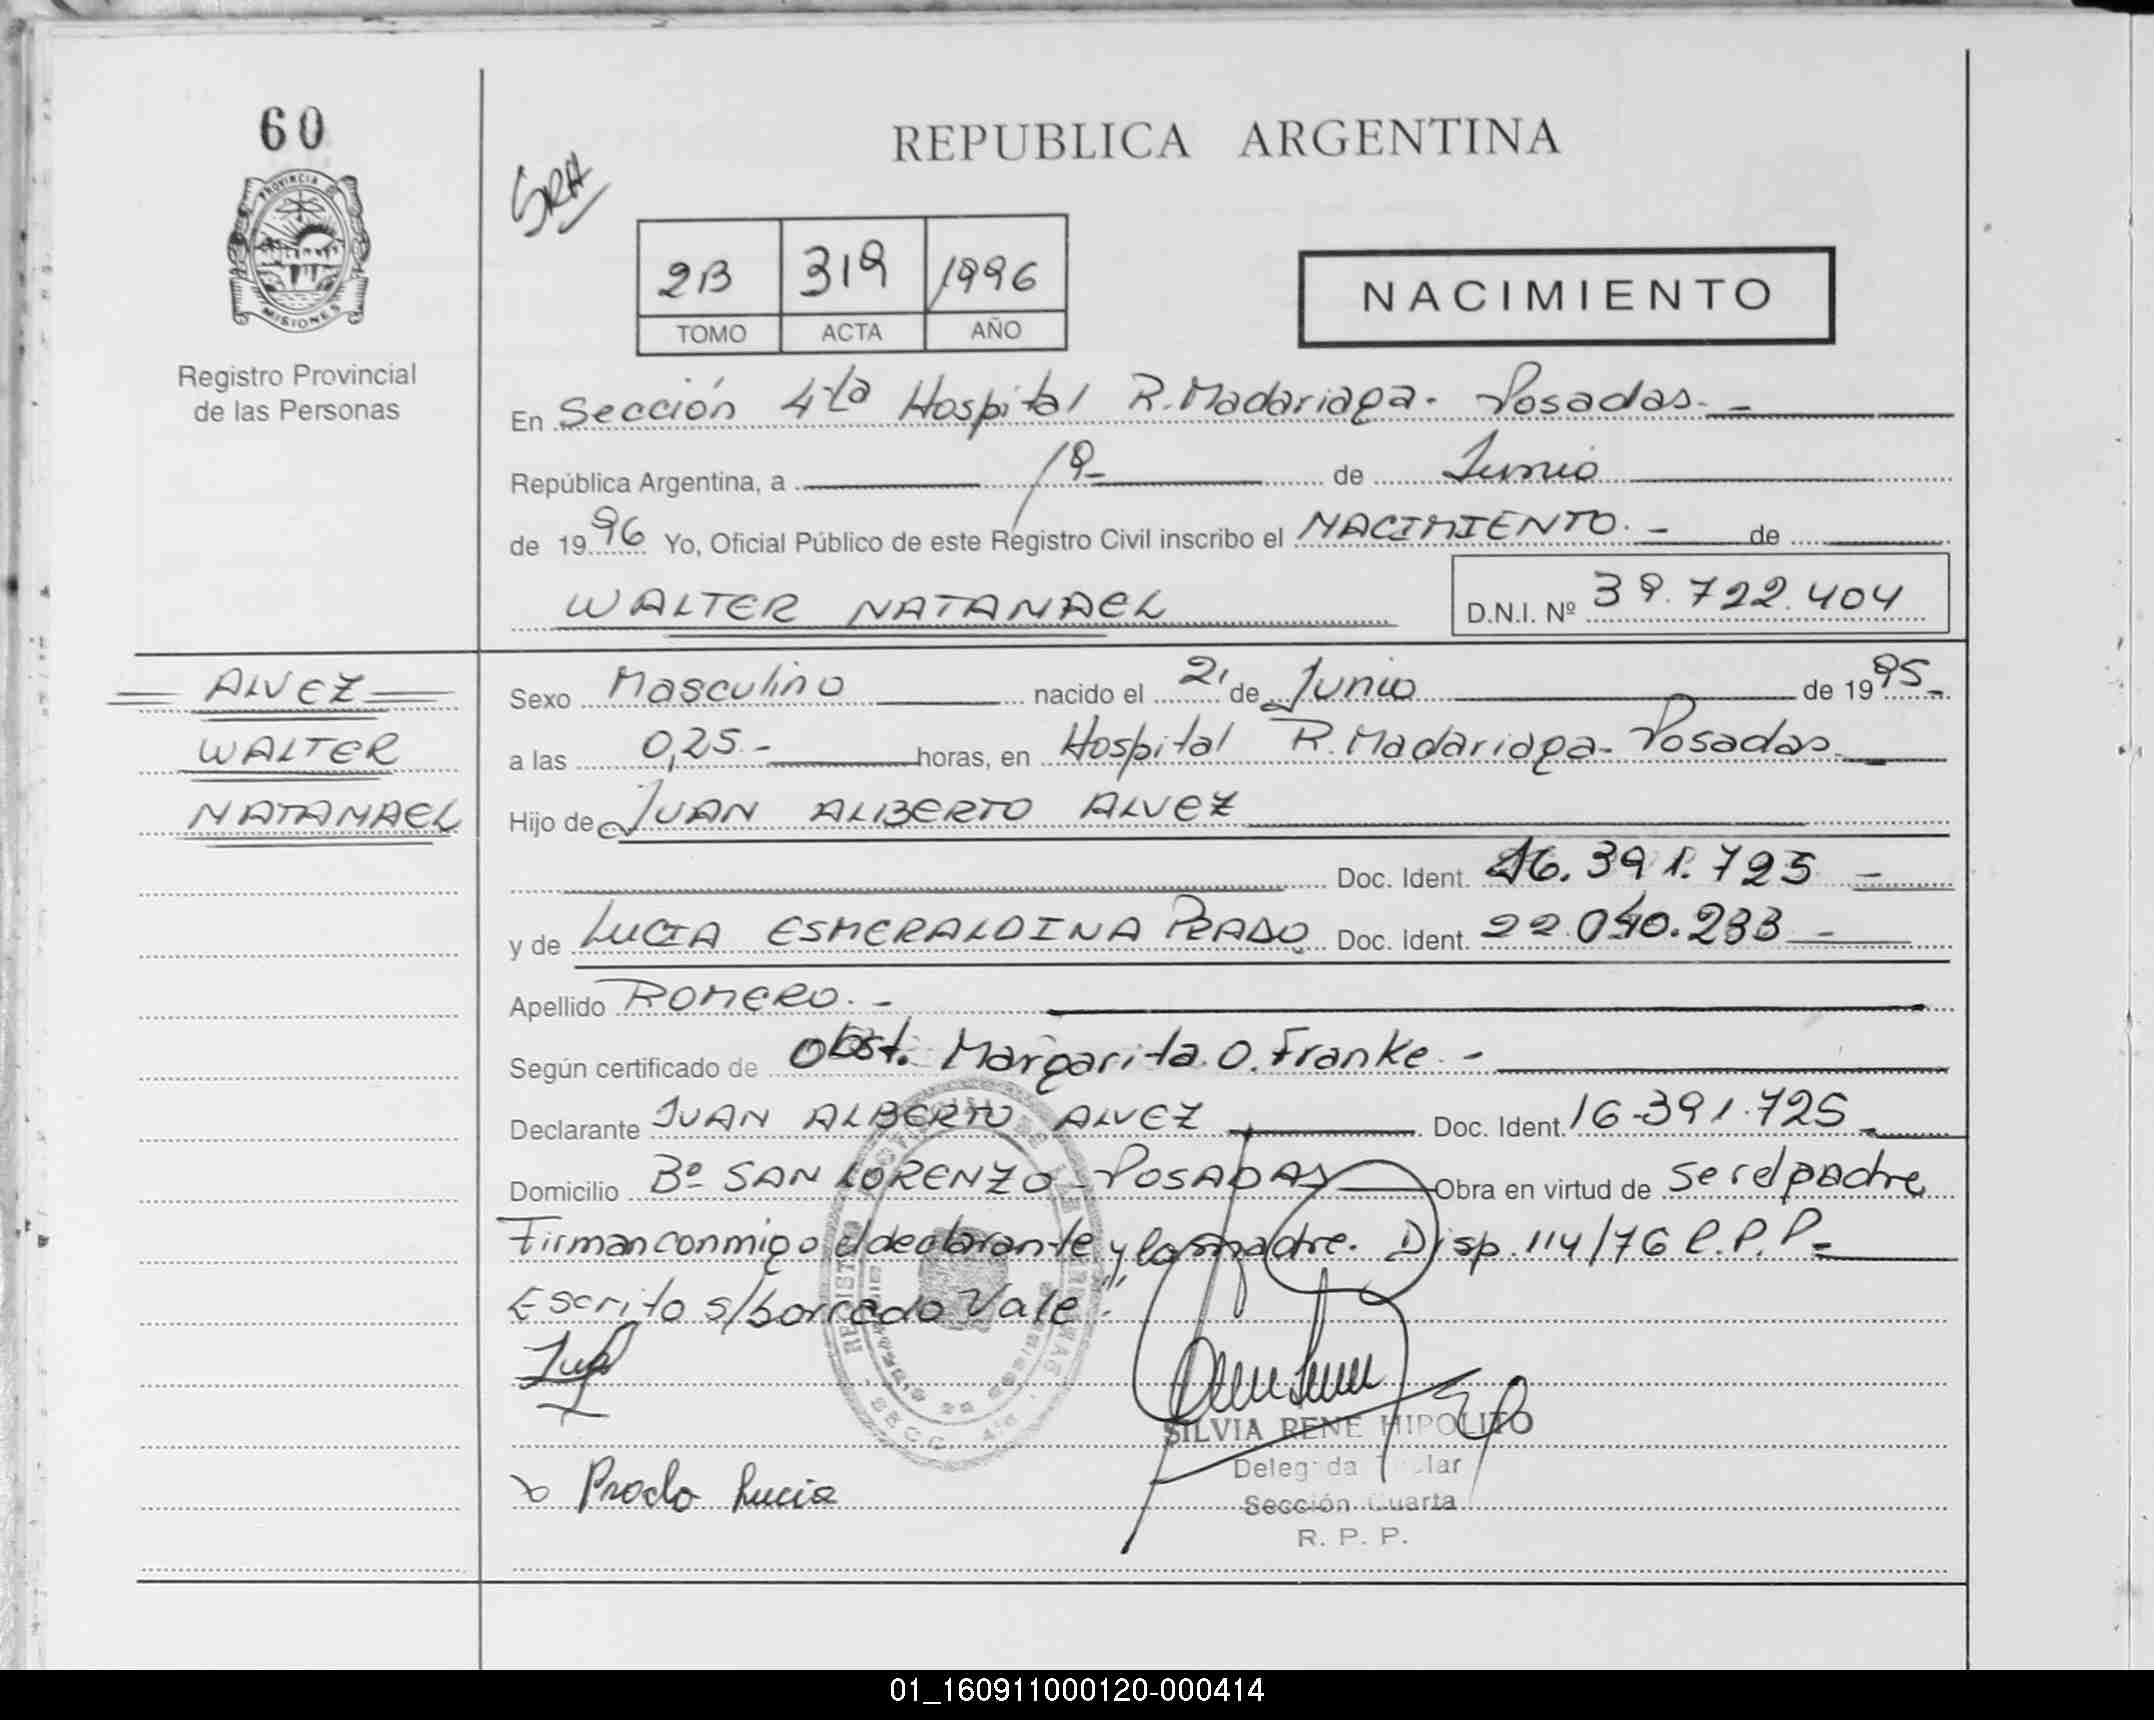 60
PROVINCIA DE
MISIONES
Registro Provincial
de las Personas
SRA
REPUBLICA ARGENTINA
2B 319 1996
TOMO ACTA AÑO
NACIMIENTO
En Sección 4ta Hospital R. Madariaga. Posadas. -
República Argentina, a 19- de Junio
de 1996 Yo, Oficial Público de este Registro Civil inscribo el NACIMIENTO. - de
WALTER NATANAEL
D.N.I. Nº 39.722.404
ALVEZ
WALTER
NATANAEL
Sexo Masculino nacido el 2 de Junio de 1995-
a las 0,25.- horas, en Hospital R. Madariaga- Posadas.
Hijo de JUAN ALBERTO ALVEZ
Doc. Ident. 16.391.725 -
y de LUCIA ESMERALDINA PRADO Doc. Ident. 22.040.233 -
Apellido ROMERO. -
Según certificado de Obst. Margarita. O. Franke. -
Declarante JUAN ALBERTO ALVEZ Doc. Ident. 16-391.725
Domicilio Bº SAN LORENZO - POSADAS Obra en virtud de ser el padre
Firman conmigo el declarante y la madre. Disp. 114/76 R.P.P-
Escrito s/borrado "Vale".
SILVIA RENE HIPOLITO
Sección Cuarta
R. P. P.
Prado Lucia
01_160911000120-000414